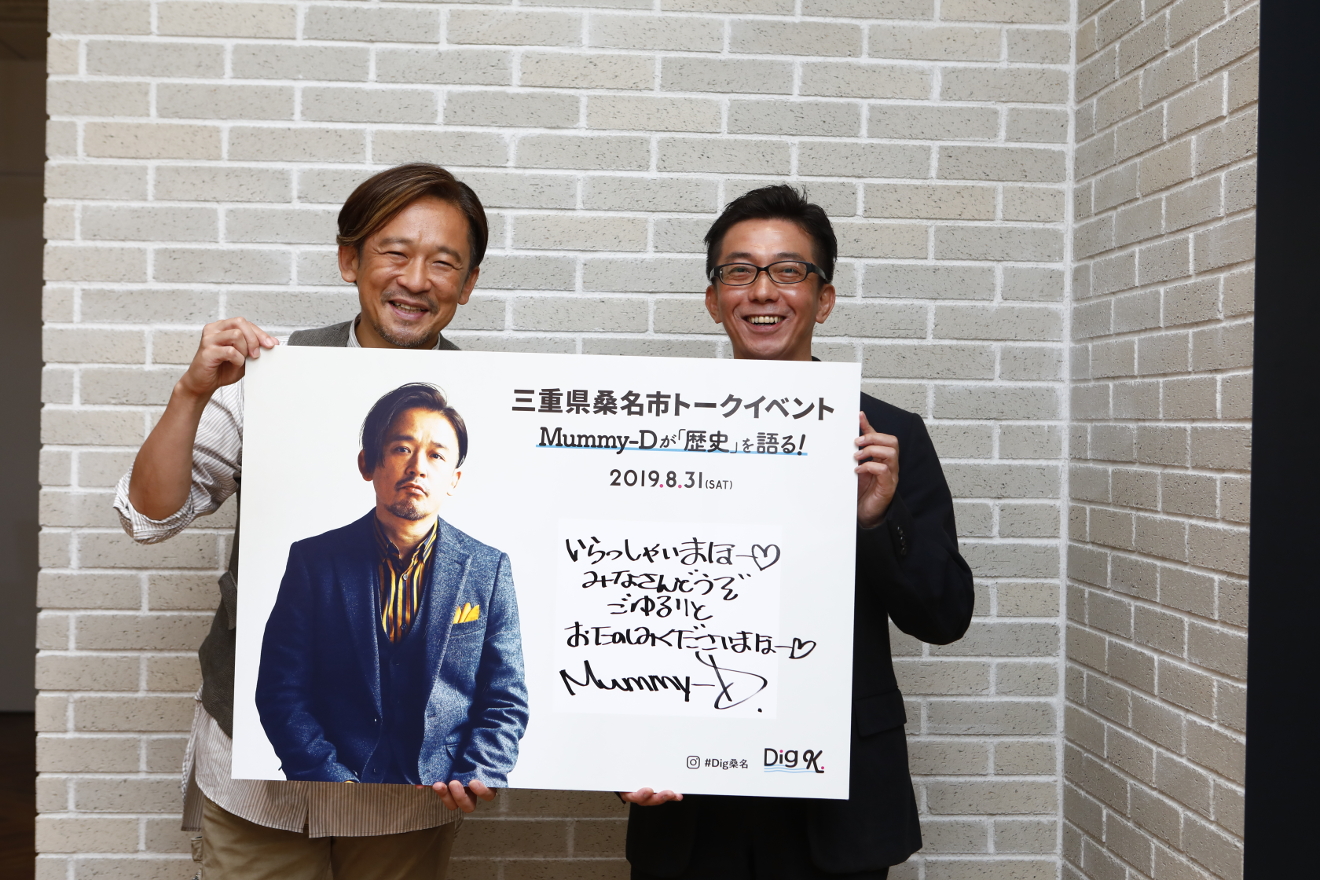 三重県桑名市トークイベント
Mummy-Dが「歴史」を語る!
2019.8.31(SAT)
いらっしゃいまほー♡
みなさんどうぞ
ごゆるりと
おたのしみくださいまほー♡
Mummy-D.
#Dig桑名
Dig K.